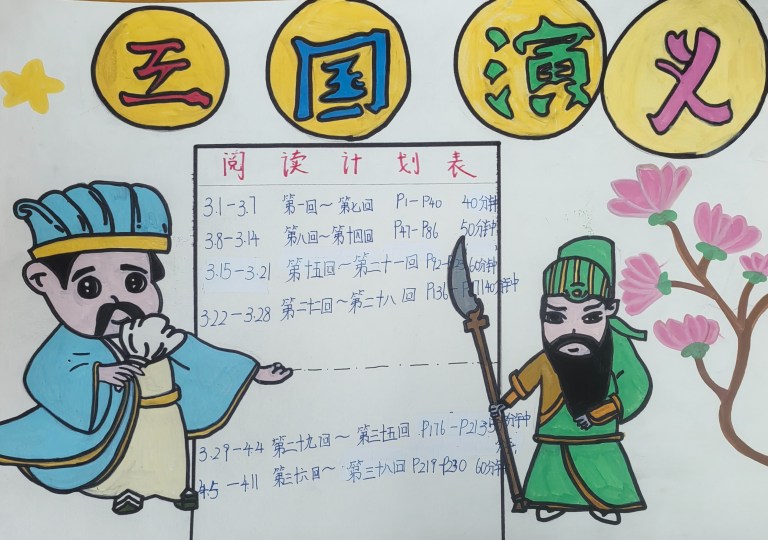 三国演义
阅读计划表
3.1-3.7 第一回~第七回 P1-P40 40分钟
3.8-3.14 第八回~第十四回 P47-P86 50分钟
3.15-3.21 第十五回~第二十一回 P92- 60分钟
3.22-3.28 第二十二回~第二十八回 P136- 40分钟
3.29-4.4 第二十九回~第三十五回 P176-P213 分钟
4.5-4.11 第三十六回~第三十八回 P219-P230 60分钟